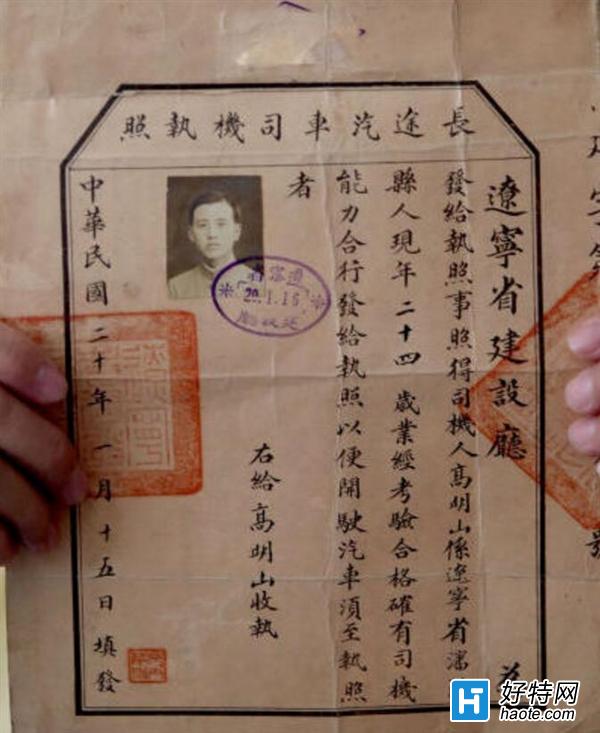 長途汽車司機執照
遼寧省建設廳 為
發給執照事照得司機人高明山係遼寧省瀋
縣人現年二十四歲業經考驗合格確有司機
能力合行發給執照以便開駛汽車須至執照
者
右給高明山收執
中華民國二十年一月十五日填發
遼寧省
20.1.16
建設廳
號
好特网
haote.com